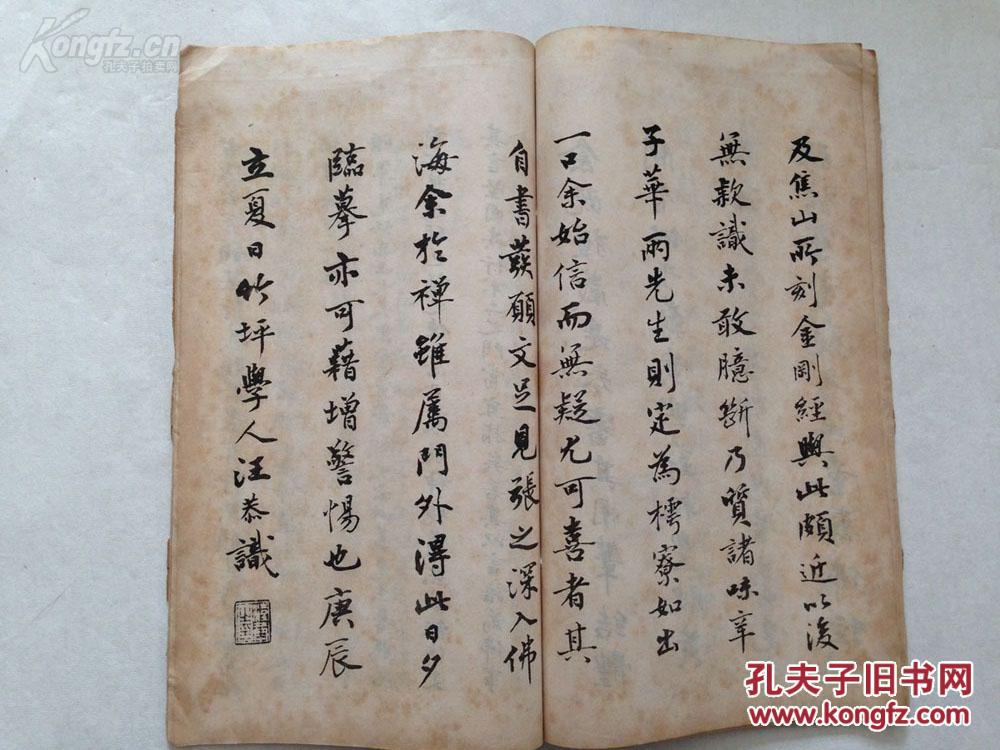 及焦山所刻金剛經與此頗近以後
無款識未敢臆斷乃質諸味辛
子華兩先生則定為樗寮如出
一口余始信而無疑尤可喜者其
自書發願文足見張之深入佛
海余於禪雖属門外得此日夕
臨摹亦可藉增警惕也庚辰
立夏日竹坪學人汪恭識
Kongfz.cn
孔夫子拍卖网
孔夫子旧书网
www.kongfz.com